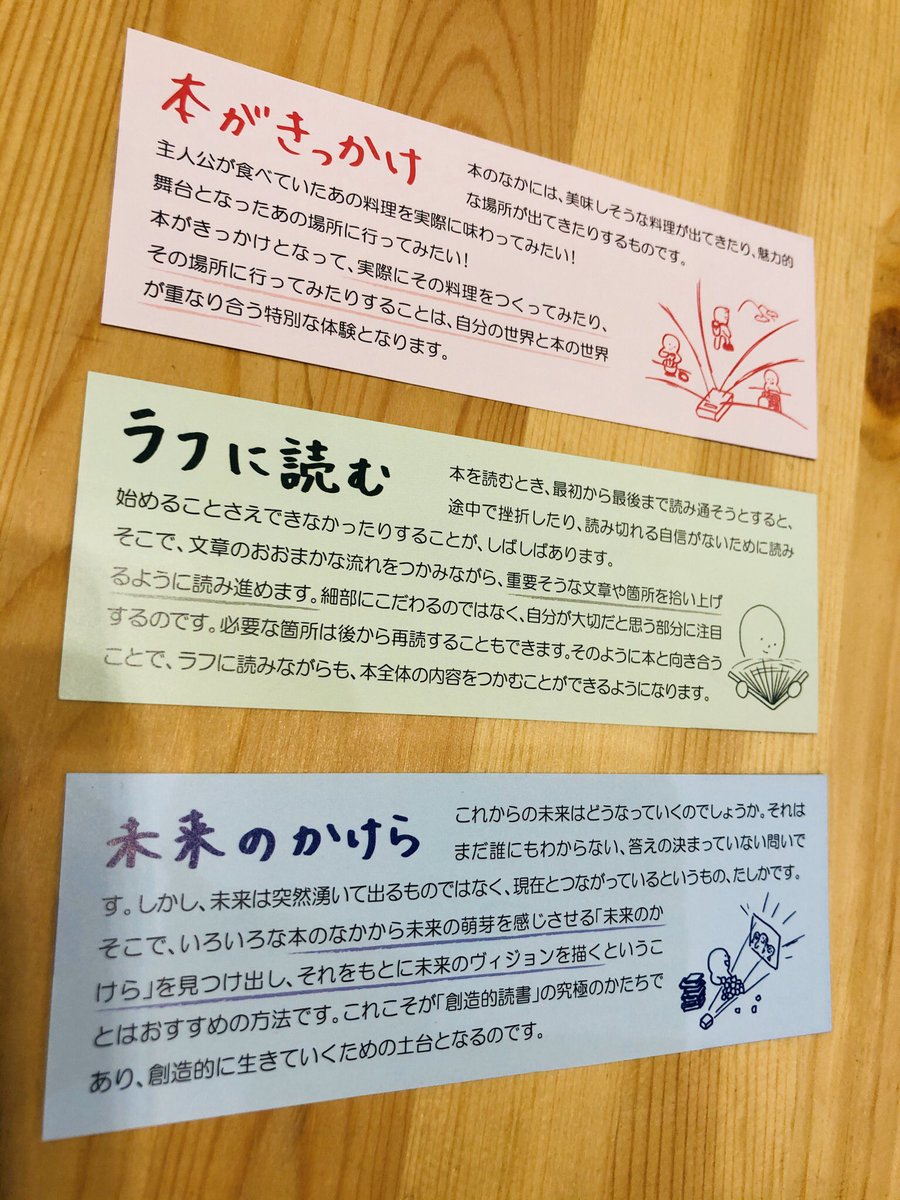 本がきっかけ
本のなかには、美味しそうな料理が出てきたり、魅力的
な場所が出てきたりするものです。
主人公が食べていたあの料理を実際に味わってみたい!
舞台となったあの場所に行ってみたい!
本がきっかけとなって、実際にその料理をつくってみたり、
その場所に行ってみたりすることは、自分の世界と本の世界
が重なり合う特別な体験となります。
ラフに読む
本を読むとき、最初から最後まで読み通そうとすると、
途中で挫折したり、読み切れる自信がないために読み
始めることさえできなかったりすることが、しばしばあります。
そこで、文章のおおまかな流れをつかみながら、重要そうな文章や箇所を拾い上げ
るように読み進めます。細部にこだわるのではなく、自分が大切だと思う部分に注目
するのです。必要な箇所は後から再読することもできます。そのように本と向き合う
ことで、ラフに読みながらも、本全体の内容をつかむことができるようになります。
未来のかけら
これからの未来はどうなっていくのでしょうか。それは
まだ誰にもわからない、答えの決まっていない問いで
す。しかし、未来は突然湧いて出るものではなく、現在とつながっているというもの、たしかです。
そこで、いろいろな本のなかから未来の萌芽を感じさせる「未来のか
けら」を見つけ出し、それをもとに未来のヴィジョンを描くというこ
とはおすすめの方法です。これこそが「創造的読書」の究極のかたちで
あり、創造的に生きていくための土台となるのです。